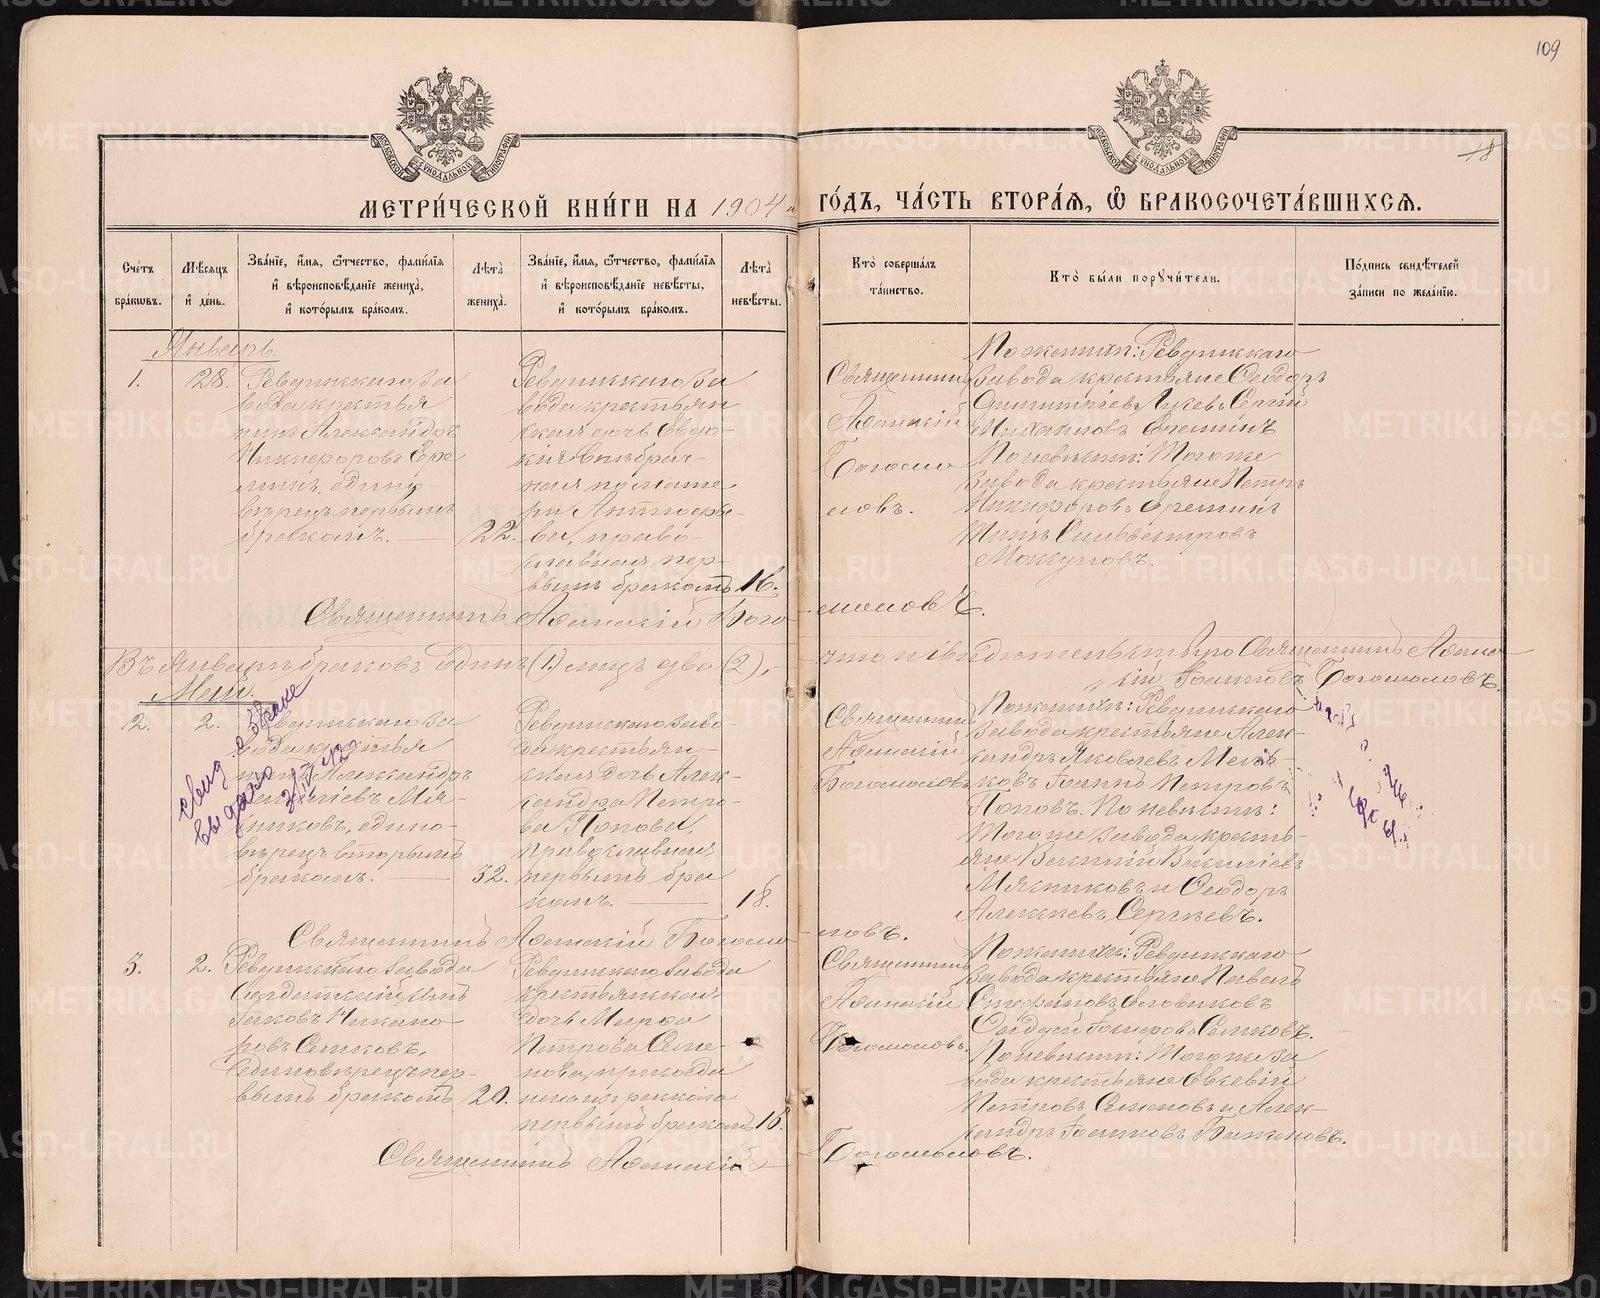 109
18
МОСКОВСКОЙ СѴНОДАЛЬНОЙ ТИПОГРАФІИ
МОСКОВСКОЙ СѴНОДАЛЬНОЙ ТИПОГРАФІИ
МЕТРИ́ЧЕСКОЙ КНИ́ГИ НА 1904 й ГО́ДЪ, ЧА́СТЬ ВТОРА́Я, Ѽ БРАКОСОЧЕТА́ВШИХСЯ.
Сче́тъ бра́кωвъ.
Мѣ́сяцъ и҆ де́нь.
Зва́нїе, и҆́мя, ѻ҆́тчество, фами́лїя и҆ вѣроисповѣ́данїе жениха̀, и҆ кото́рымъ бра́комъ.
Лѣ́та жениха̀.
Зва́нїе, и҆́мя, ѻ҆́тчество, фами́лїя и҆ вѣроисповѣ́данїе невѣ́сты, и҆ кото́рымъ бра́комъ.
Лѣ́та невѣ́сты.
Кто̀ соверша́лъ та́инство.
Кто̀ бы́ли порꙋчи́тели.
По́дпись свидѣ́телей за́писи по жела́нїю.
Январь.
1.
28.
Ревдинскаго за
вода крестья
нинъ Александръ
Никифоровъ Ере
минъ, едино-
вѣрецъ первымъ
бракомъ.
22.
Ревдинскаго за
вода крестьян
ская дочь Евдо-
кия внѣбрач-
ная по мате
ри
ва, право-
славная пер-
вымъ бракомъ
16.
Священникъ
Афанасій
Богомо
ловъ.
По женихѣ: Ревдинскаго
завода крестьяне Феодоръ
Димитріевъ и Сергій
Михаиловъ Ереминъ
По невѣстѣ: Того же
завода крестьяне Петръ
Никифоровъ Ереминъ
Силвестровъ
Священникъ Афанасій Бого-
моловъ.
Въ Январѣ браковъ Единъ (1) лицъ два (2),
что и свидѣтельствую Священникъ Афана-
сій Іоанновъ Богомоловъ.
Май.
2.
2.
Ревдинскаго за
вода крестья
нинъ Александръ
Василіевъ Мя-
сниковъ, едино-
вѣрецъ вторымъ
бракомъ.
32.
свид. о браке
выдано
Ревдинскаго заво-
да крестьян-
ская дочь Алек-
сандра Петро-
ва Попова,
православная
первымъ бра
комъ.
18.
Священникъ
Афанасій
Богомоловъ
По женихѣ: Ревдинскаго
завода крестьяне Алек-
сандръ Яковлевъ
Іоаннъ Петровъ
Поповъ. По невѣстѣ:
Того же завода кресть-
яне Василій Василіевъ
Мясниковъ и Феодоръ
Алексѣевъ Сергѣевъ.
Священникъ Афанасій Богомо-
ловъ.
3.
2.
Ревдинскаго завода
Солдатскій сынъ
Іаковъ Никано-
ровъ
Единовѣрецъ пер-
вымъ бракомъ
20.
Ревдинскаго завода
крестьянская
дочь Марфа
Петрова Семе-
нова,
первымъ бракомъ
18.
Священникъ
Афанасій
Богомоловъ.
По женихѣ: Ревдинскаго
завода крестьяне Павелъ
Стефановъ
По невѣстѣ: Того же за
вода крестьяне Евсевій
Петровъ Семеновъ и Алек-
сандръ Іоанновъ Баженовъ.
Священникъ Афанасій
Богомоловъ.
METRIKI.GASO-URAL.RU